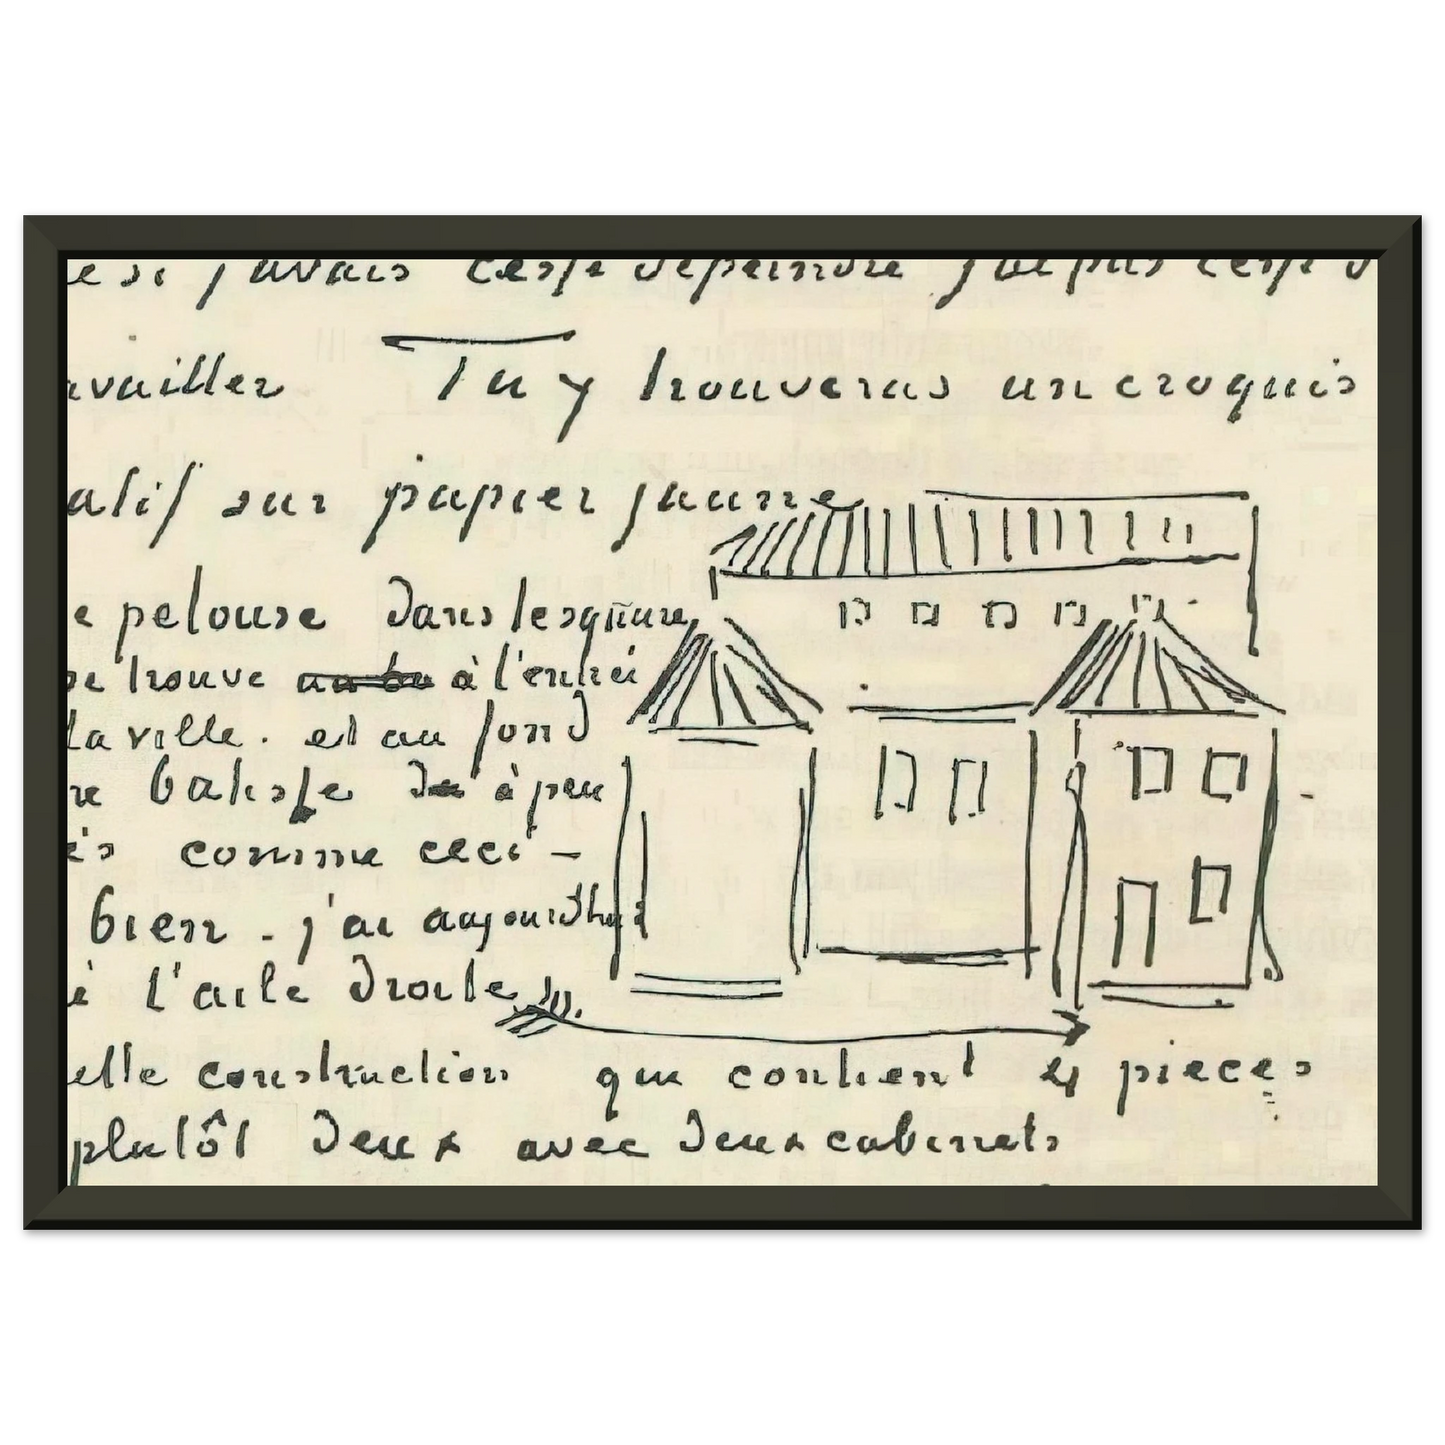 e si j'avais cessé de peindre j'ai pas cessé d
availler Tu y trouveras un croquis
atif sur papier jaune
e pelouse dans le square
se trouve à l'entré
la ville. et au fond
re batisse de à peu
ès comme ceci -
bien. j'ai aujourdhui
é l'aile droite
elle construction qui contient 4 pieces
plutôt deux avec deux cabinets